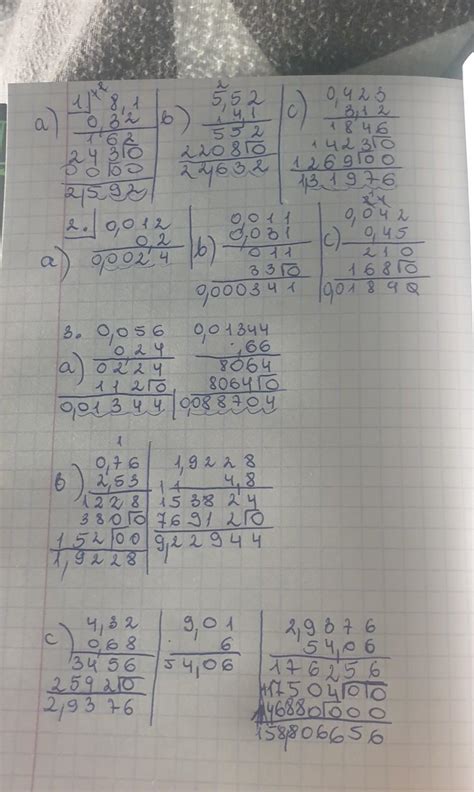 1. a) 8,1 b) 5,52 c) 0,423
0,32 1 4,1 3,12
162 552 1846
2430 22080 14230
0000 22,632 126900
2,592 1,31976
2. 0,012 0,011 0,042
a) 0,2 b) 0,031 c) 0,45
0,0024 011 210
330 1680
0,000341 0,01890
3. 0,056 0,01344
a) 0,24 ,66
0224 8064
1120 80640
0,01344 0,0088704
1
b) 0,76 1,9228
2,53 4,8
1228 153824
3800 769120
15200 9,22944
1,9228
c) 4,32 9,01 2,9376
0,68 6 54,06
3456 54,06 176256
25920 11750400
2,9376 14688000
158,806656